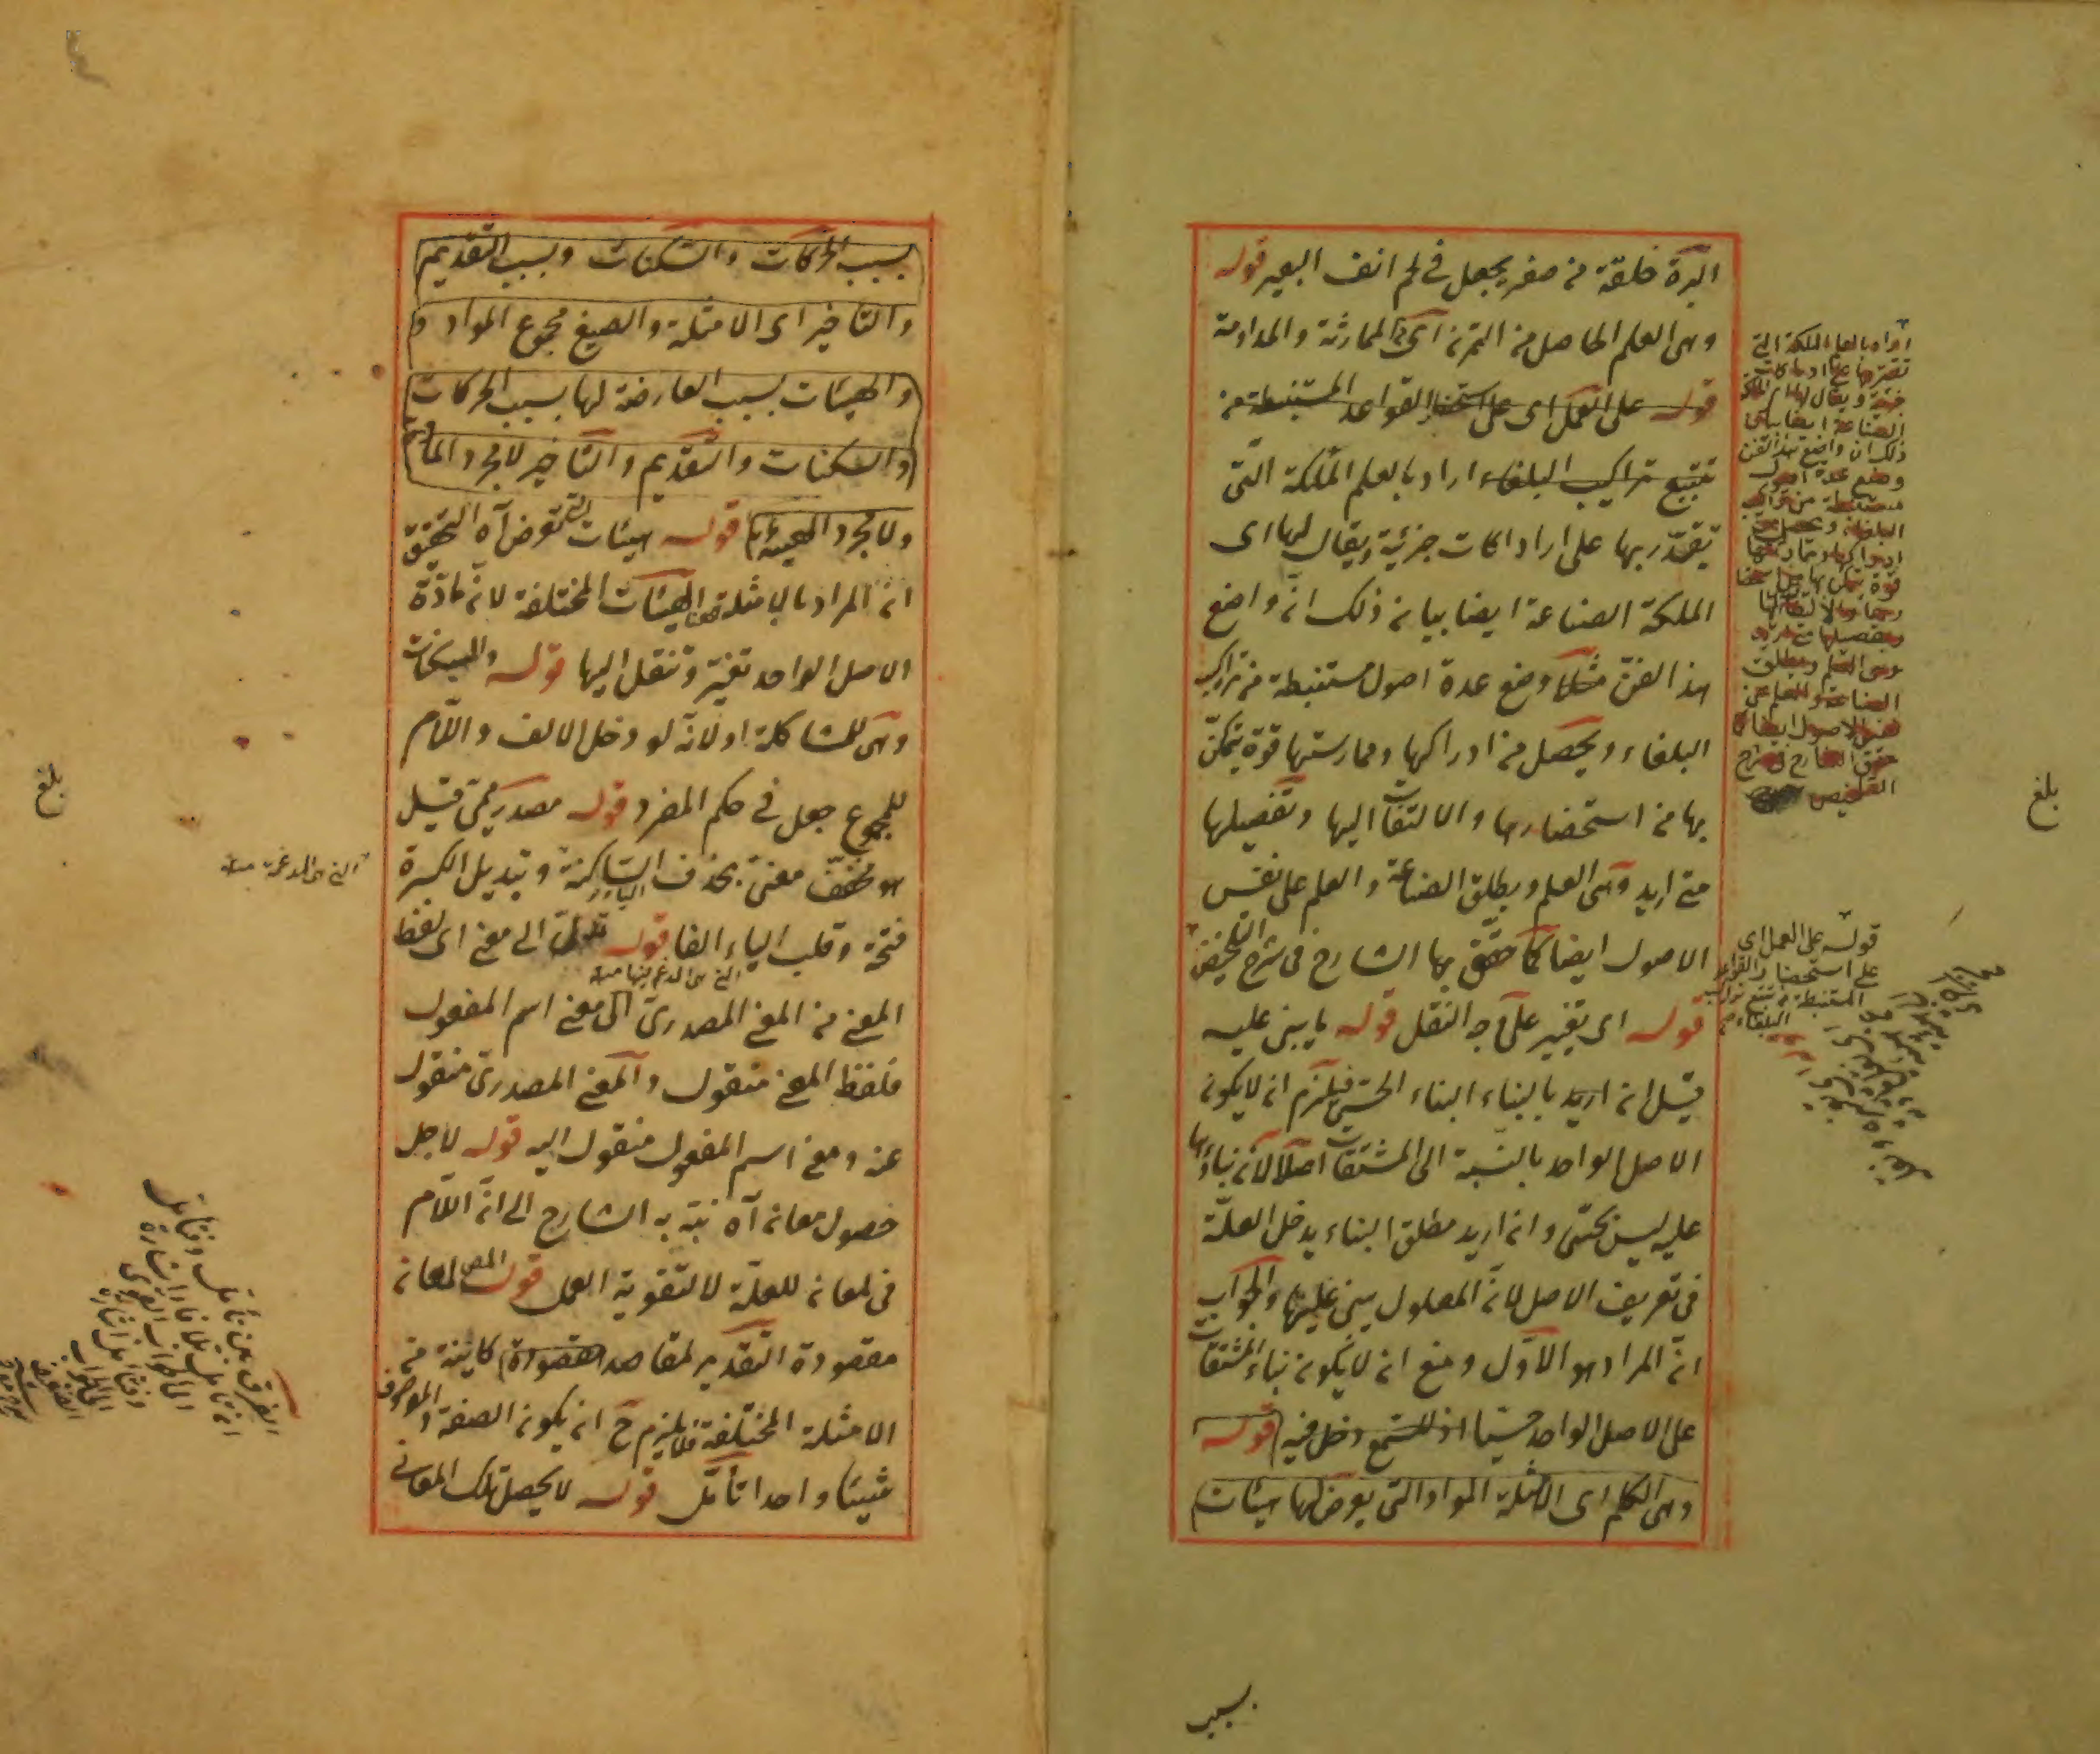 البرة حلقة من صفر يجعل في لحم انف البعير قوله
وهى العلم الحاصل من التمرن اى الممارثة والمداومة
قوله على العمل اى على استحضار القواعد المستنبطة من
تتبع تراكيب البلغاء اراد بالعلم الملكة التى
تقتدر بها على ارادراكات جزئية ويقال لها اى
الملكة الصناعة ايضا بيان ذلك انّ واضع
هذا الفنّ مثلا وضع عدة اصول مستنبطة من تراكيب
البلغاء ويحصل من ادراكها وممارستها قوة يتمكّن
بها من استحضارها والالتفات اليها وتفصيلها
متى اريد وهى العلم ويطلق الصناعة والعلم على نفس
الاصول ايضا كما حقّق بها الشارح فى شرح التلخيص
قوله اى يتغير على وجه النقل قوله ما يبنى عليه
قيل ان اريد بالبناء البناء الحسّى فيلزم ان لا يكون
الاصل الواحد بالنسبة الى المشتقات اصلا لانّ بناءها
عليه ليس بحسّى وان اريد مطلق البناء يدخل العلّة
فى تعريف الاصل لانّ المعلول يبنى عليها والجواب
انّ المراد هو الاوّل ومنع ان لا يكون بناء المشتقات
على الاصل الواحد حسّيا اذ للسّمع دخل فيه قوله
وهى الكلم اى الامثلة المواد التى يعرض لها هيئات
بسبب
اراد بالعلم الملكة التى
تقتدر بها على ادراكات
جزئية ويقال لها اى الملكة
الصناعة ايضا بيان
ذلك ان واضع هذا الفن
وضع عدة اصول
مستنبطة من تراكيب
البلغاء ويحصل من
ادراكها وممارستها
قوة يتمكن بها من استحضا
رها والالتفات اليها
وتفصيلها متى اريد
وهى العلم ويطلق
الصناعة والعلم على
نفس الاصول ايضا كما
حقق الشارح فى شرح
التلخيص
قوله على العمل اى
على استحضار القواعد
المستنبطة من تتبع تراكيب
البلغاء
بلغ
بسبب الحركات والسّكنات وبسبب التقديم
والتاخير اى الامثلة والصيغ مجموع المواد و
والهيئات بسبب العارضة لها بسبب الحركات
والسكنات والتقديم والتاخير لا مجرد الماد
ولا مجرد الهيئة قوله هيئات التى تعرض آه التحقيق
ان المراد بالامثلة هنا الهيئات المختلفة لانّ مادّة
الاصل الواحد تغير وتنقل اليها قوله والسكنات
وهى للمشاكلة او لانّه لو دخل الالف واللام
للجموع جعل فى حكم المفرد قوله مصدر ميمى قيل
هو مخفّف معنىّ بحذف الياء السّاكنة وتبديل الكسرة
فتحة وقلب الياء الفا قوله نقل الى معنى اى لفظ
المعنى من المعنى المصدرى الى معنى اسم المفعول
فلفظ المعنى منقول والمعنى المصدرى منقول
عنه ومعنى اسم المفعول منقول اليه قوله لاجل
حصول معان آه نبّه به الشارح الى انّ اللّام
فى لمعان للعلّة لا لتقوية العمل قوله المص لمعان
مقصودة التقدير لمقاصد مقصودة كاينة من
الامثلة المختلفة فلا يلزم ح ان يكون الصفة والموصوف
شيئا واحدا تأمّل قوله لا يحصل تلك المعانى
بلغ